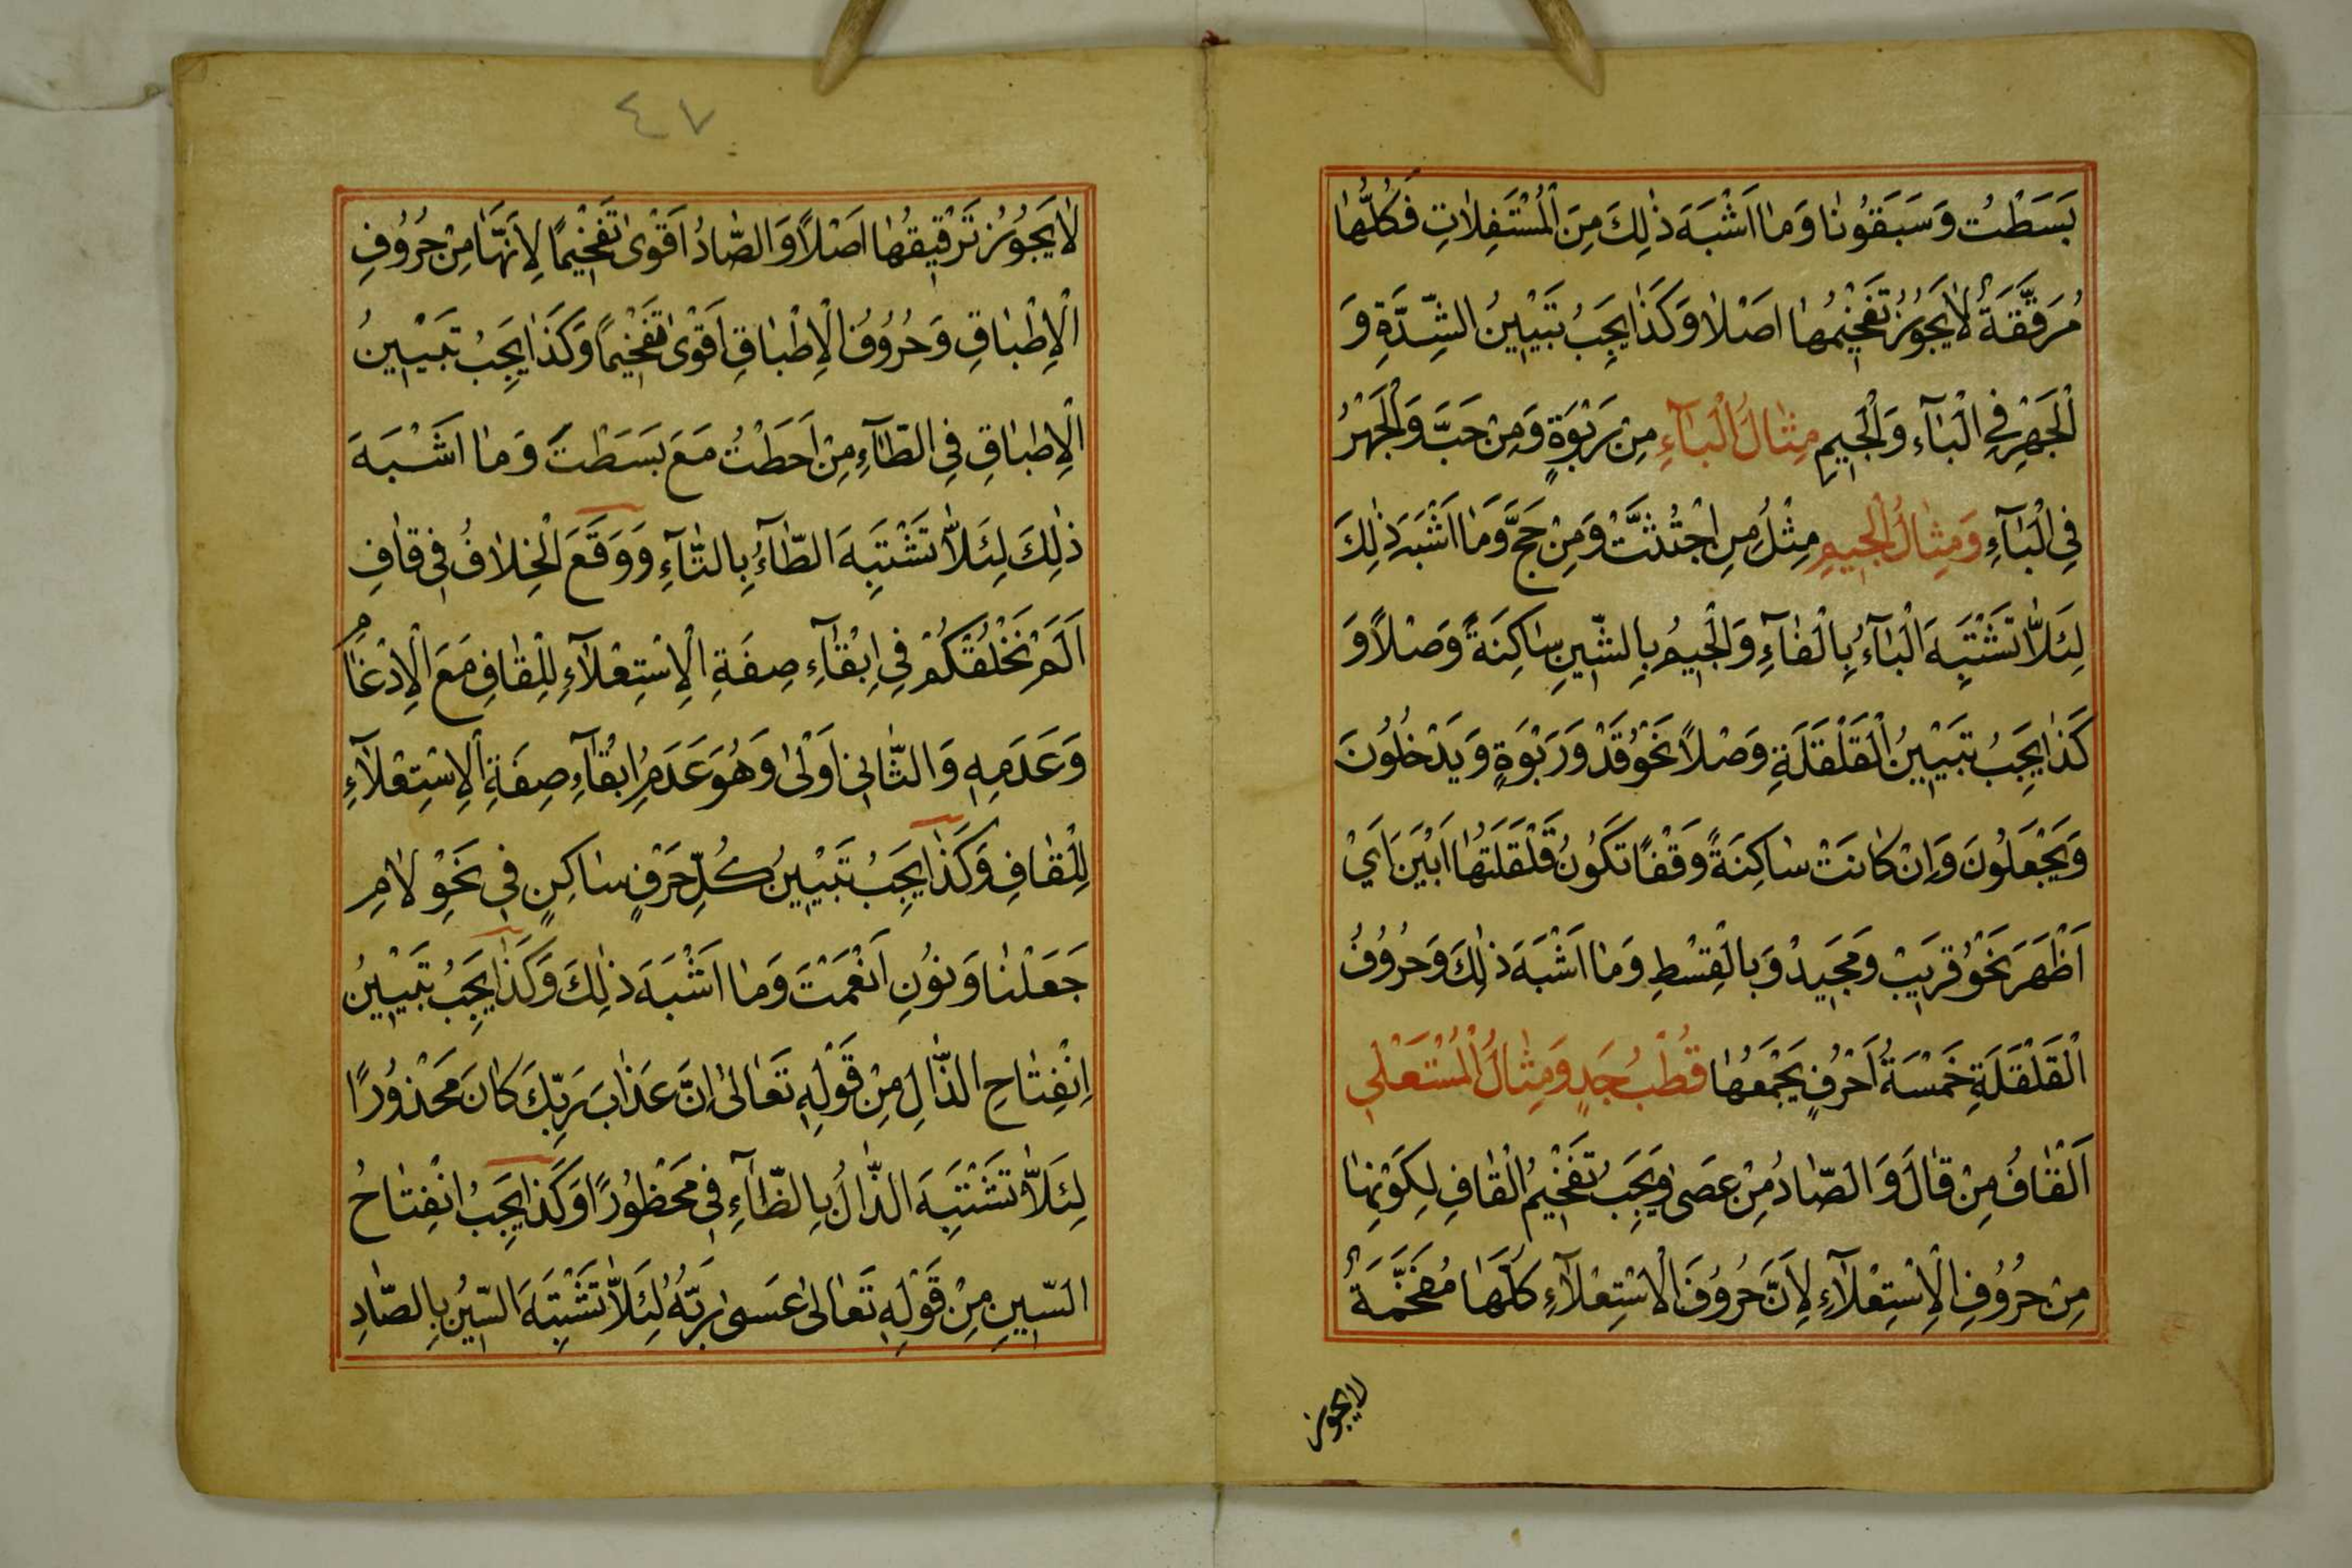 بَسَطْتُ وَسَبَقُونَا وَمَا اَشْبَهَ ذٰلِكَ مِنَ الْمُسْتَفِلَاتِ فَكُلُّهَا
مُرَقَّقَةٌ لَا يَجُوزُ تَفْخِيْمُهَا اَصْلًا وَكَذَا يَجِبُ تَبْيِيْنُ الشِّدَّةِ وَ
الْجَهْرِ فِي الْبَآءِ وَالْجِيمِ مِثَالُ الْبَآءِ مِنْ رَبْوَةٍ وَمِنْ حَبَّ وَالْجَهْرُ
فِي الْبَآءِ وَمِثَالُ الْجِيمِ مِثْلُ مِنِ اجْتُثَّتْ وَمِنْ حَجَّ وَمَا اَشْبَهَ ذٰلِكَ
لِئَلَّا تَشْتَبِهَ الْبَآءُ بِالْفَآءِ وَالْجِيمُ بِالشِّينِ سَاكِنَةً وَصْلًا وَ
كَذَا يَجِبُ تَبْيِيْنُ الْقَلْقَلَةِ وَصْلًا نَحْوُ قَدْ وَرَبْوَةٍ وَيَدْخُلُونَ
وَيَجْعَلُونَ وَاِنْ كَانَتْ سَاكِنَةً وَقْفًا تَكُونُ قَلْقَلَتُهَا اَبْيَنَ اَيْ
اَظْهَرَ نَحْوُ قَرِيبْ وَمَجِيدْ وَبِالْقِسْطِ وَمَا اَشْبَهَ ذٰلِكَ وَحُرُوفُ
الْقَلْقَلَةِ خَمْسَةُ اَحْرُفٍ يَجْمَعُهَا قُطْبُ جَدٍ وَمِثَالُ الْمُسْتَعْلِى
اَلْقَافُ مِنْ قَالَ وَالصَّادُ مِنْ عَصَى وَيَجِبُ تَفْخِيْمُ الْقَافِ لِكَوْنِهَا
مِنْ حُرُوفِ الْاِسْتِعْلَآءِ لِاَنَّ حُرُوفَ الْاِسْتِعْلَآءِ كُلَّهَا مُفَخَّمَةٌ
لايجوز
٤٧
لَا يَجُوزُ تَرْقِيقُهَا اَصْلًا وَالصَّادُ اَقْوٰى تَفْخِيْمًا لِاَنَّهَا مِنْ حُرُوفِ
الْاِطْبَاقِ وَحُرُوفُ الْاِطْبَاقِ اَقْوٰى تَفْخِيْمًا وَكَذَا يَجِبُ تَبْيِيْنُ
الْاِطْبَاقِ فِي الطَّآءِ مِنْ اَحَطْتُ مَعَ بَسَطْتَ وَمَا اَشْبَهَ
ذٰلِكَ لِئَلَّا تَشْتَبِهَ الطَّآءُ بِالتَّآءِ وَوَقَعَ الْخِلَافُ فِي قَافِ
اَلَمْ نَخْلُقْكُمْ فِي اِبْقَآءِ صِفَةِ الْاِسْتِعْلَآءِ لِلْقَافِ مَعَ الْاِدْغَامِ
وَعَدَمِهِ وَالثَّانِي اَوْلٰى وَهُوَ عَدَمُ اِبْقَآءِ صِفَةِ الْاِسْتِعْلَآءِ
لِلْقَافِ وَكَذَا يَجِبُ تَبْيِيْنُ كُلِّ حَرْفٍ سَاكِنٍ فِي نَحْوِ لَامِ
جَعَلْنَا وَنُونِ اَنْعَمْتَ وَمَا اَشْبَهَ ذٰلِكَ وَكَذَا يَجِبُ تَبْيِيْنُ
اِنْفِتَاحِ الذَّالِ مِنْ قَوْلِهِ تَعَالٰى اِنَّ عَذَابَ رَبِّكَ كَانَ مَحْذُورًا
لِئَلَّا تَشْتَبِهَ الذَّالُ بِالظَّآءِ فِي مَحْظُورًا وَكَذَا يَجِبُ انْفِتَاحُ
السِّينِ مِنْ قَوْلِهِ تَعَالٰى عَسٰى رَبُّهُ لِئَلَّا تَشْتَبِهَ السِّيْنُ بِالصَّادِ